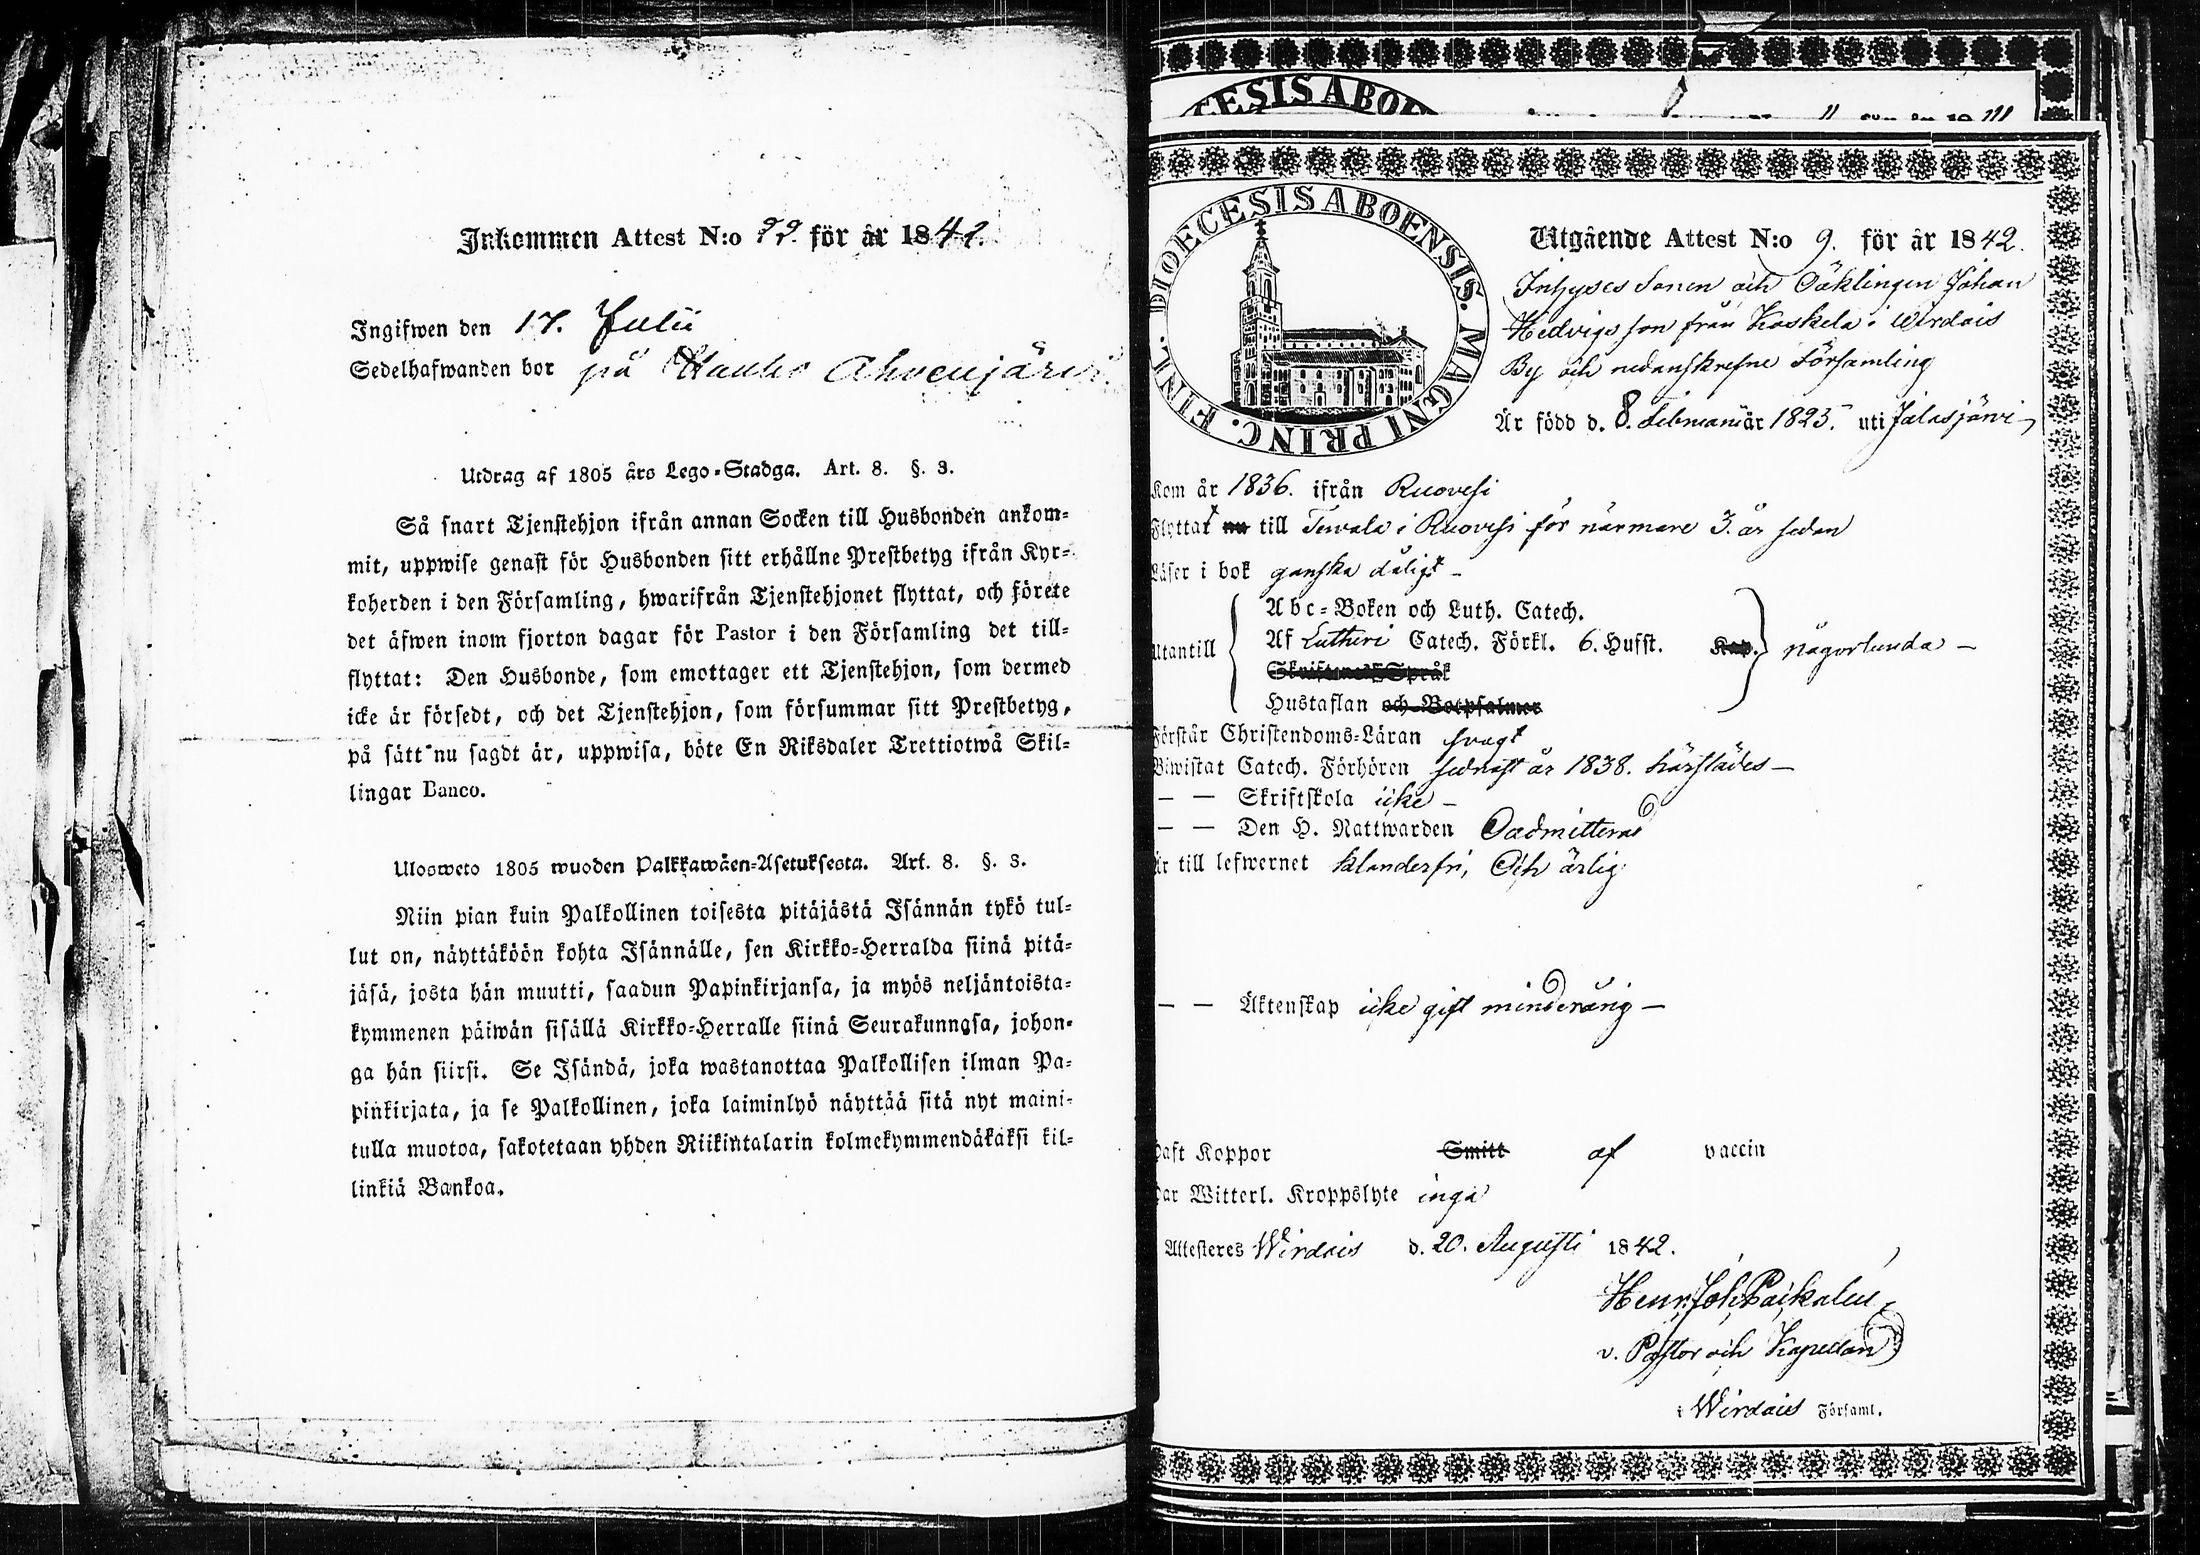 Inkommen Attest N:o 99. för år 1842.
Ingifwen den 17. Julii
Sedelhafwanden bor på Ahvenjärvi
Utdrag af 1805 års Lego-Stadga. Art. 8. §. 3.
Så snart Tjenstehjon ifrån annan Socken till Husbonden ankom-
mit, uppwise genast för Husbonden sitt erhållne Prestbetyg ifrån Kyr-
koherden i den Församling, hwarifrån Tjenstehjonet flyttat, och förete
det äfwen inom fjorton dagar för Pastor i den Församling det till-
flyttat: Den Husbonde, som emottager ett Tjenstehjon, som dermed
icke är försedt, och det Tjenstehjon, som försummar sitt Prestbetyg,
på sätt nu sagdt är, uppwisa, böte En Riksdaler Trettiotwå Skil-
lingar Banco.
Ulosweto 1805 wuoden Palkkawäen-Asetuksesta. Art. 8. §. 3.
Niin pian kuin Palkollinen toisesta pitäjästä Isännän tykö tul-
lut on, näyttäköön kohta Isännälle, sen Kirkko-Herralda siinä pitä-
jäsä, josta hän muutti, saadun Papinkirjansa, ja myös neljäntoista-
kymmenen päiwän sisällä Kirkko-Herralle siinä Seurakunnasa, johon-
ga hän siirsi. Se Isändä, joka wastanottaa Palkollisen ilman Pa-
pinkirjata, ja se Palkollinen, joka laiminlyö näyttää sitä nyt maini-
tulla muotoa, sakotetaan yhden Riikintalarin kolmekymmendäkaksi kil-
linkiä Bankoa.
CESIS ABOE
DIOECESIS ABOENSIS. MAGNI PRINC. FINL.
Utgående Attest N:o 9. för år 1842.
Inhyses Sonen och Oäktingen Johan
Hedvigs son från Koskela i Wirdois
By och nedanskrefne Församling
Är född d. 8. Februarii år 1825. uti Jalasjärvi
Kom år 1836. ifrån Ruovesi
Flyttat nu till Tewala i Ruovesi för närmare 3. år sedan
Läser i bok ganska dåligt
Abc-Boken och Luth. Catech.
Utantill Af Lutheri Catech. Förkl. 6. Hufst. Kap. någorlunda
Skriftenes Språk
Hustaflan och Botpsalmer
Förstår Christendoms-Läran svagt
Biwistat Catech. Förhören sednast år 1838. härstädes
— — Skriftskola icke
— — Den H. Nattwarden Oadmitterad
Är till lefwernet klanderfri, Och ärlig
— — Äktenskap icke gift minderårig
Haft Koppor Smitt af vaccin
Har Witterl. Kroppslyte inga
Attesteres Wirdois d. 20. Augusti 1842.
Henr. Joh.
v. Pastor och Kapellan
i Wirdois Församl.